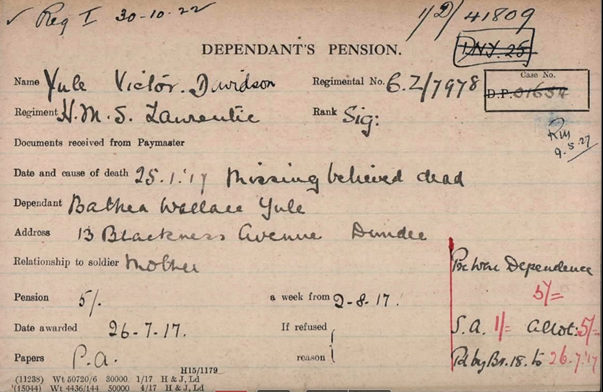 ✓ Reg I 30-10-22
1/D/41809
DEPENDANT'S PENSION.
D.N.J. 25
Name Yule Victor. Davidson Regimental No. C.Z/7978
Case No.
D.P. 01654
Regiment H.M.S. Laurentic Rank Sig:
9.5.27
Documents received from Paymaster
Date and cause of death 25.1.'17 Missing believed dead
Dependant Bathea Wallace Yule
Address 13 Blackness Avenue Dundee
Relationship to soldier Mother
Pre War Dependence
5/=
Pension 5/. a week from 2-8-17.
Date awarded 26-7.17. If refused
S.A. 1/= Allot: 5/-
Papers P.A. reason
Pd by Br. 18. to 26.7.'17
H15/1179
(11238) Wt 50720/6 30000 1/17 H & J, Ld
(15044) Wt 4436/144 50000 4/17 H & J, Ld